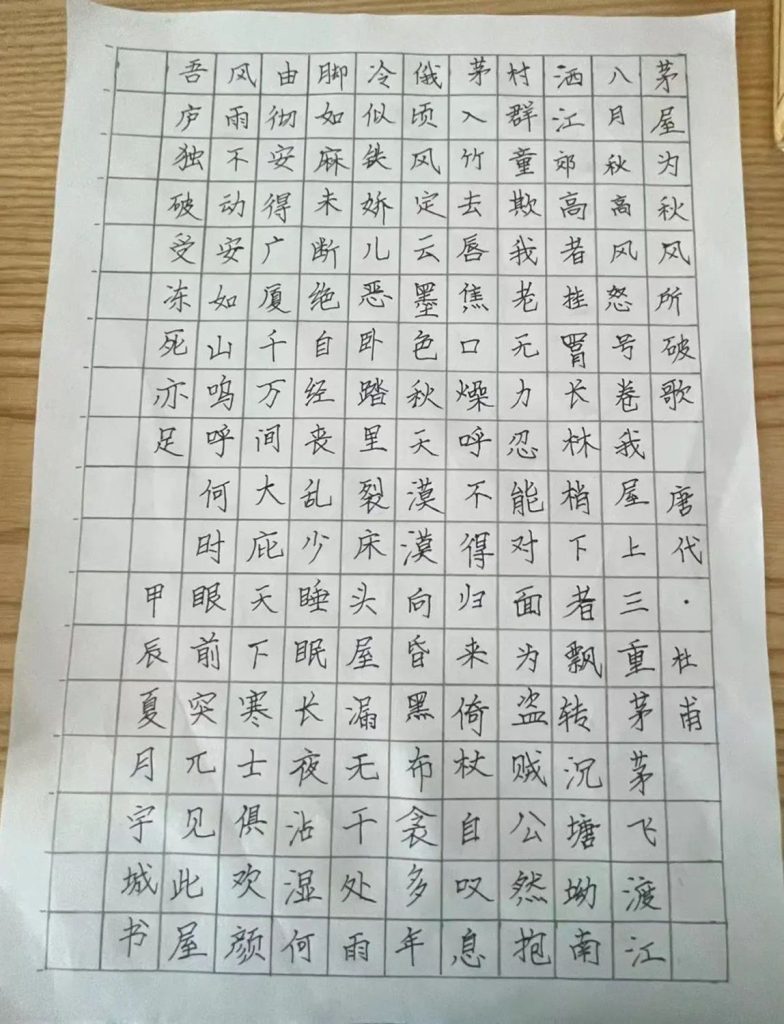 茅屋为秋风所破歌 唐代·杜甫
八月秋高风怒号卷我屋上三重茅茅飞渡江
洒江郊高者挂罥长林梢下者飘转沉塘坳南
村群童欺我老无力忍能对面为盗贼公然抱
茅入竹去唇焦口燥呼不得归来倚杖自叹息
俄顷风定云墨色秋天漠漠向昏黑布衾多年
冷似铁娇儿恶卧踏里裂床头屋漏无干处雨
脚如麻未断绝自经丧乱少睡眠长夜沾湿何
由彻安得广厦千万间大庇天下寒士俱欢颜
风雨不动安如山呜呼何时眼前突兀见此屋
吾庐独破受冻死亦足 甲辰夏月宇城书